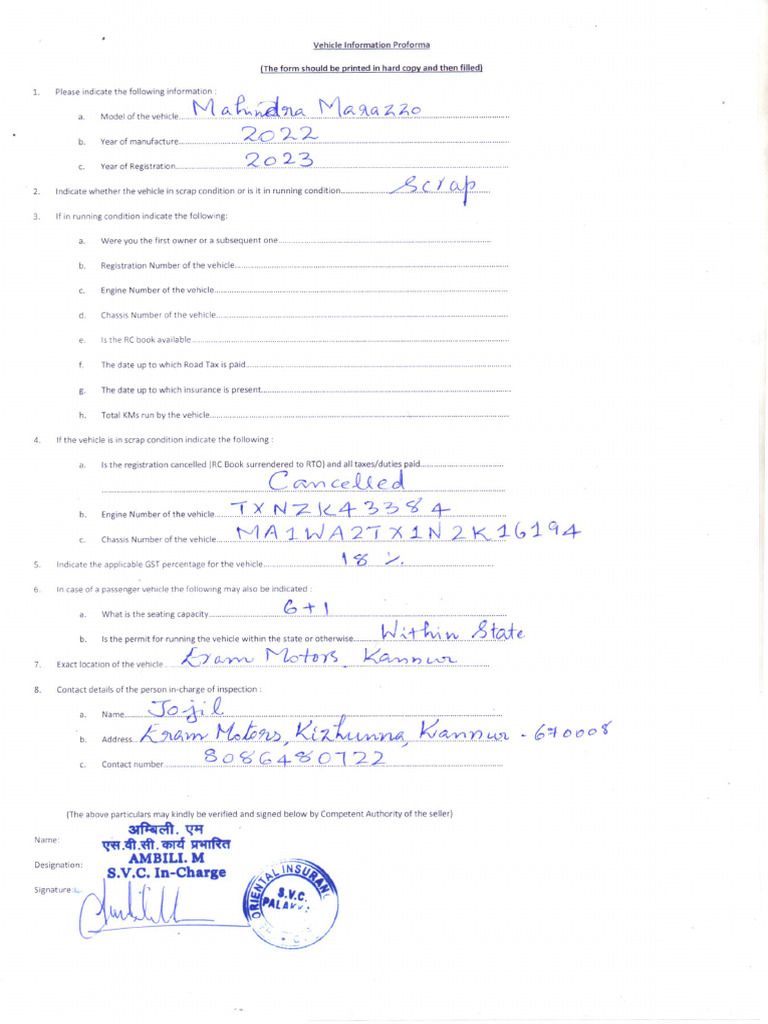 Vehicle Information Proforma
(The form should be printed in hard copy and then filled)
1. Please indicate the following information :
a. Model of the vehicle Mahindra Marazzo
b. Year of manufacture 2022
c. Year of Registration 2023
2. Indicate whether the vehicle in scrap condition or is it in running condition Scrap
3. If in running condition indicate the following:
a. Were you the first owner or a subsequent one
b. Registration Number of the vehicle
c. Engine Number of the vehicle
d. Chassis Number of the vehicle
e. Is the RC book available
f. The date up to which Road Tax is paid
g. The date up to which insurance is present
h. Total KMs run by the vehicle
4. If the vehicle is in scrap condition indicate the following :
a. Is the registration cancelled (RC Book surrendered to RTO) and all taxes/duties paid
Cancelled
b. Engine Number of the vehicle TXNZK43384
c. Chassis Number of the vehicle MA1WA2TX1N2K16194
5. Indicate the applicable GST percentage for the vehicle 18 %
6. In case of a passenger vehicle the following may also be indicated :
a. What is the seating capacity 6+1
b. Is the permit for running the vehicle within the state or otherwise Within State
7. Exact location of the vehicle Eram Motors, Kannur
8. Contact details of the person in-charge of inspection :
a. Name Jojil
b. Address Eram Motors, Kizhunna, Kannur - 670008
c. Contact number 8086480722
(The above particulars may kindly be verified and signed below by Competent Authority of the seller)
अम्बिली. एम
Name: एस.वी.सी.कार्य प्रभारित
AMBILI. M
Designation: S.V.C. In-Charge
Signature:
ORIENTAL INSURAN
S.V.C.
PALAKK